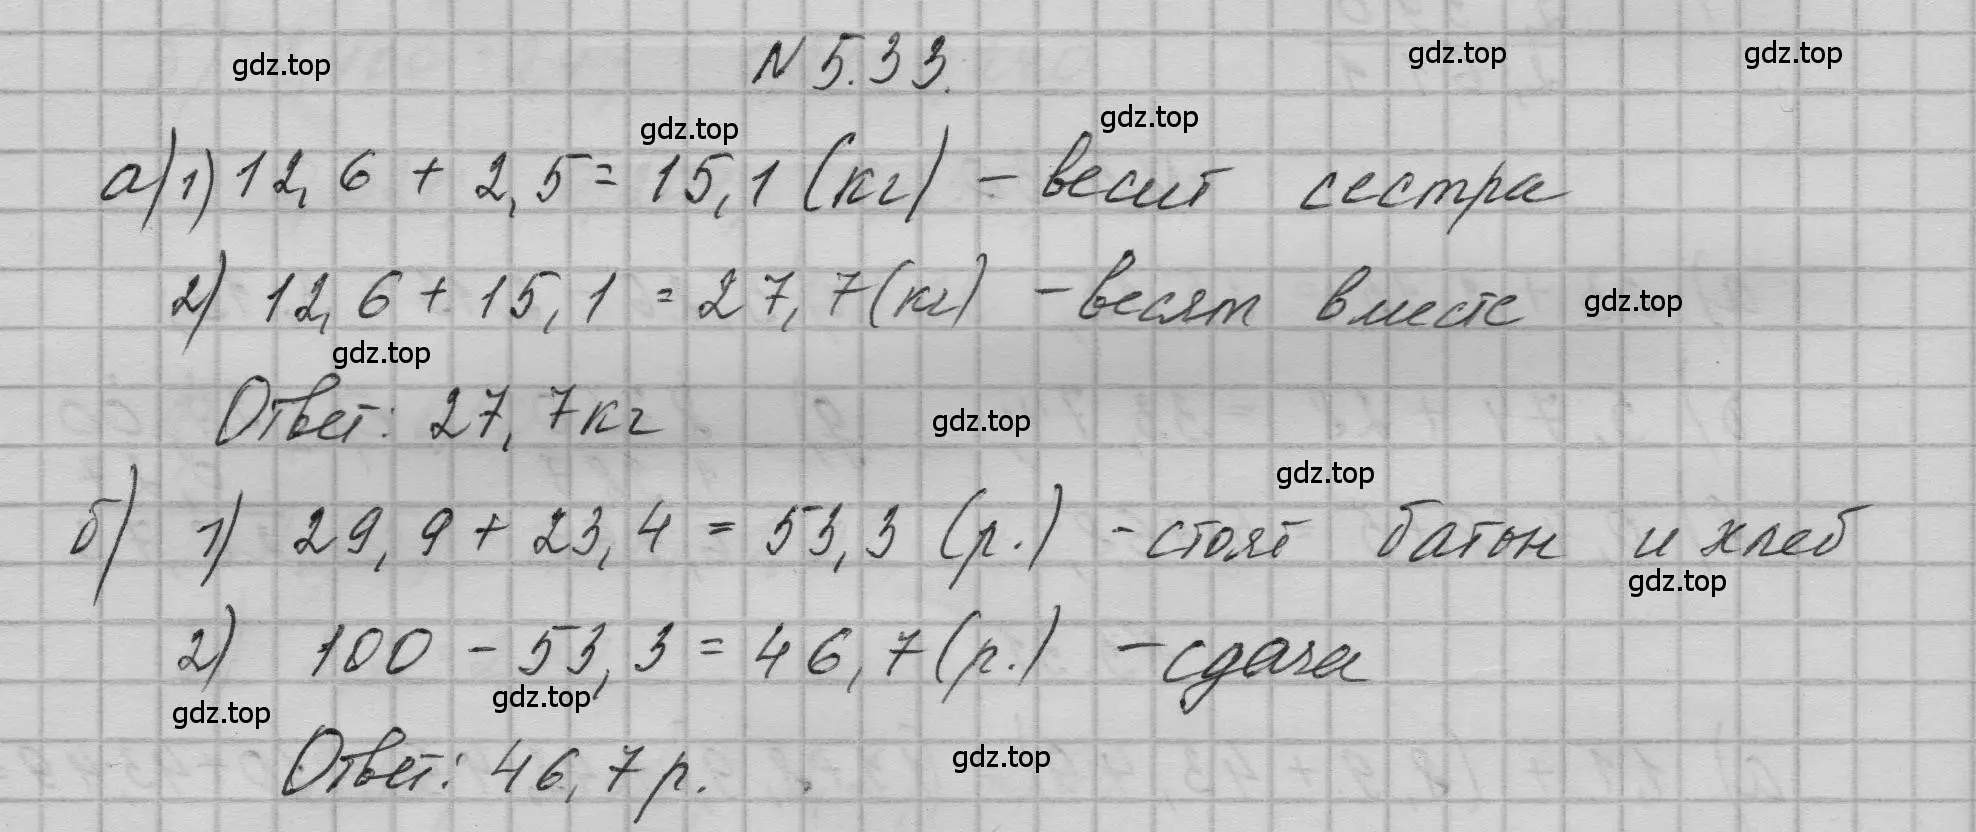 N 5.33.
gdz.top
gdz.top
gdz.top
gdz.top
gdz.top
а) 1) 12,6 + 2,5 = 15,1 (кг) - весит сестра
2) 12,6 + 15,1 = 27,7 (кг) - весят вместе
gdz.top
gdz.top
Ответ: 27,7 кг
gdz.top
gdz.top
б) 1) 29,9 + 23,4 = 53,3 (р.) - стоят батон и хлеб
gdz.top
2) 100 - 53,3 = 46,7 (р.) - сдача
gdz.top
gdz.top
Ответ: 46,7 р.
gdz.top